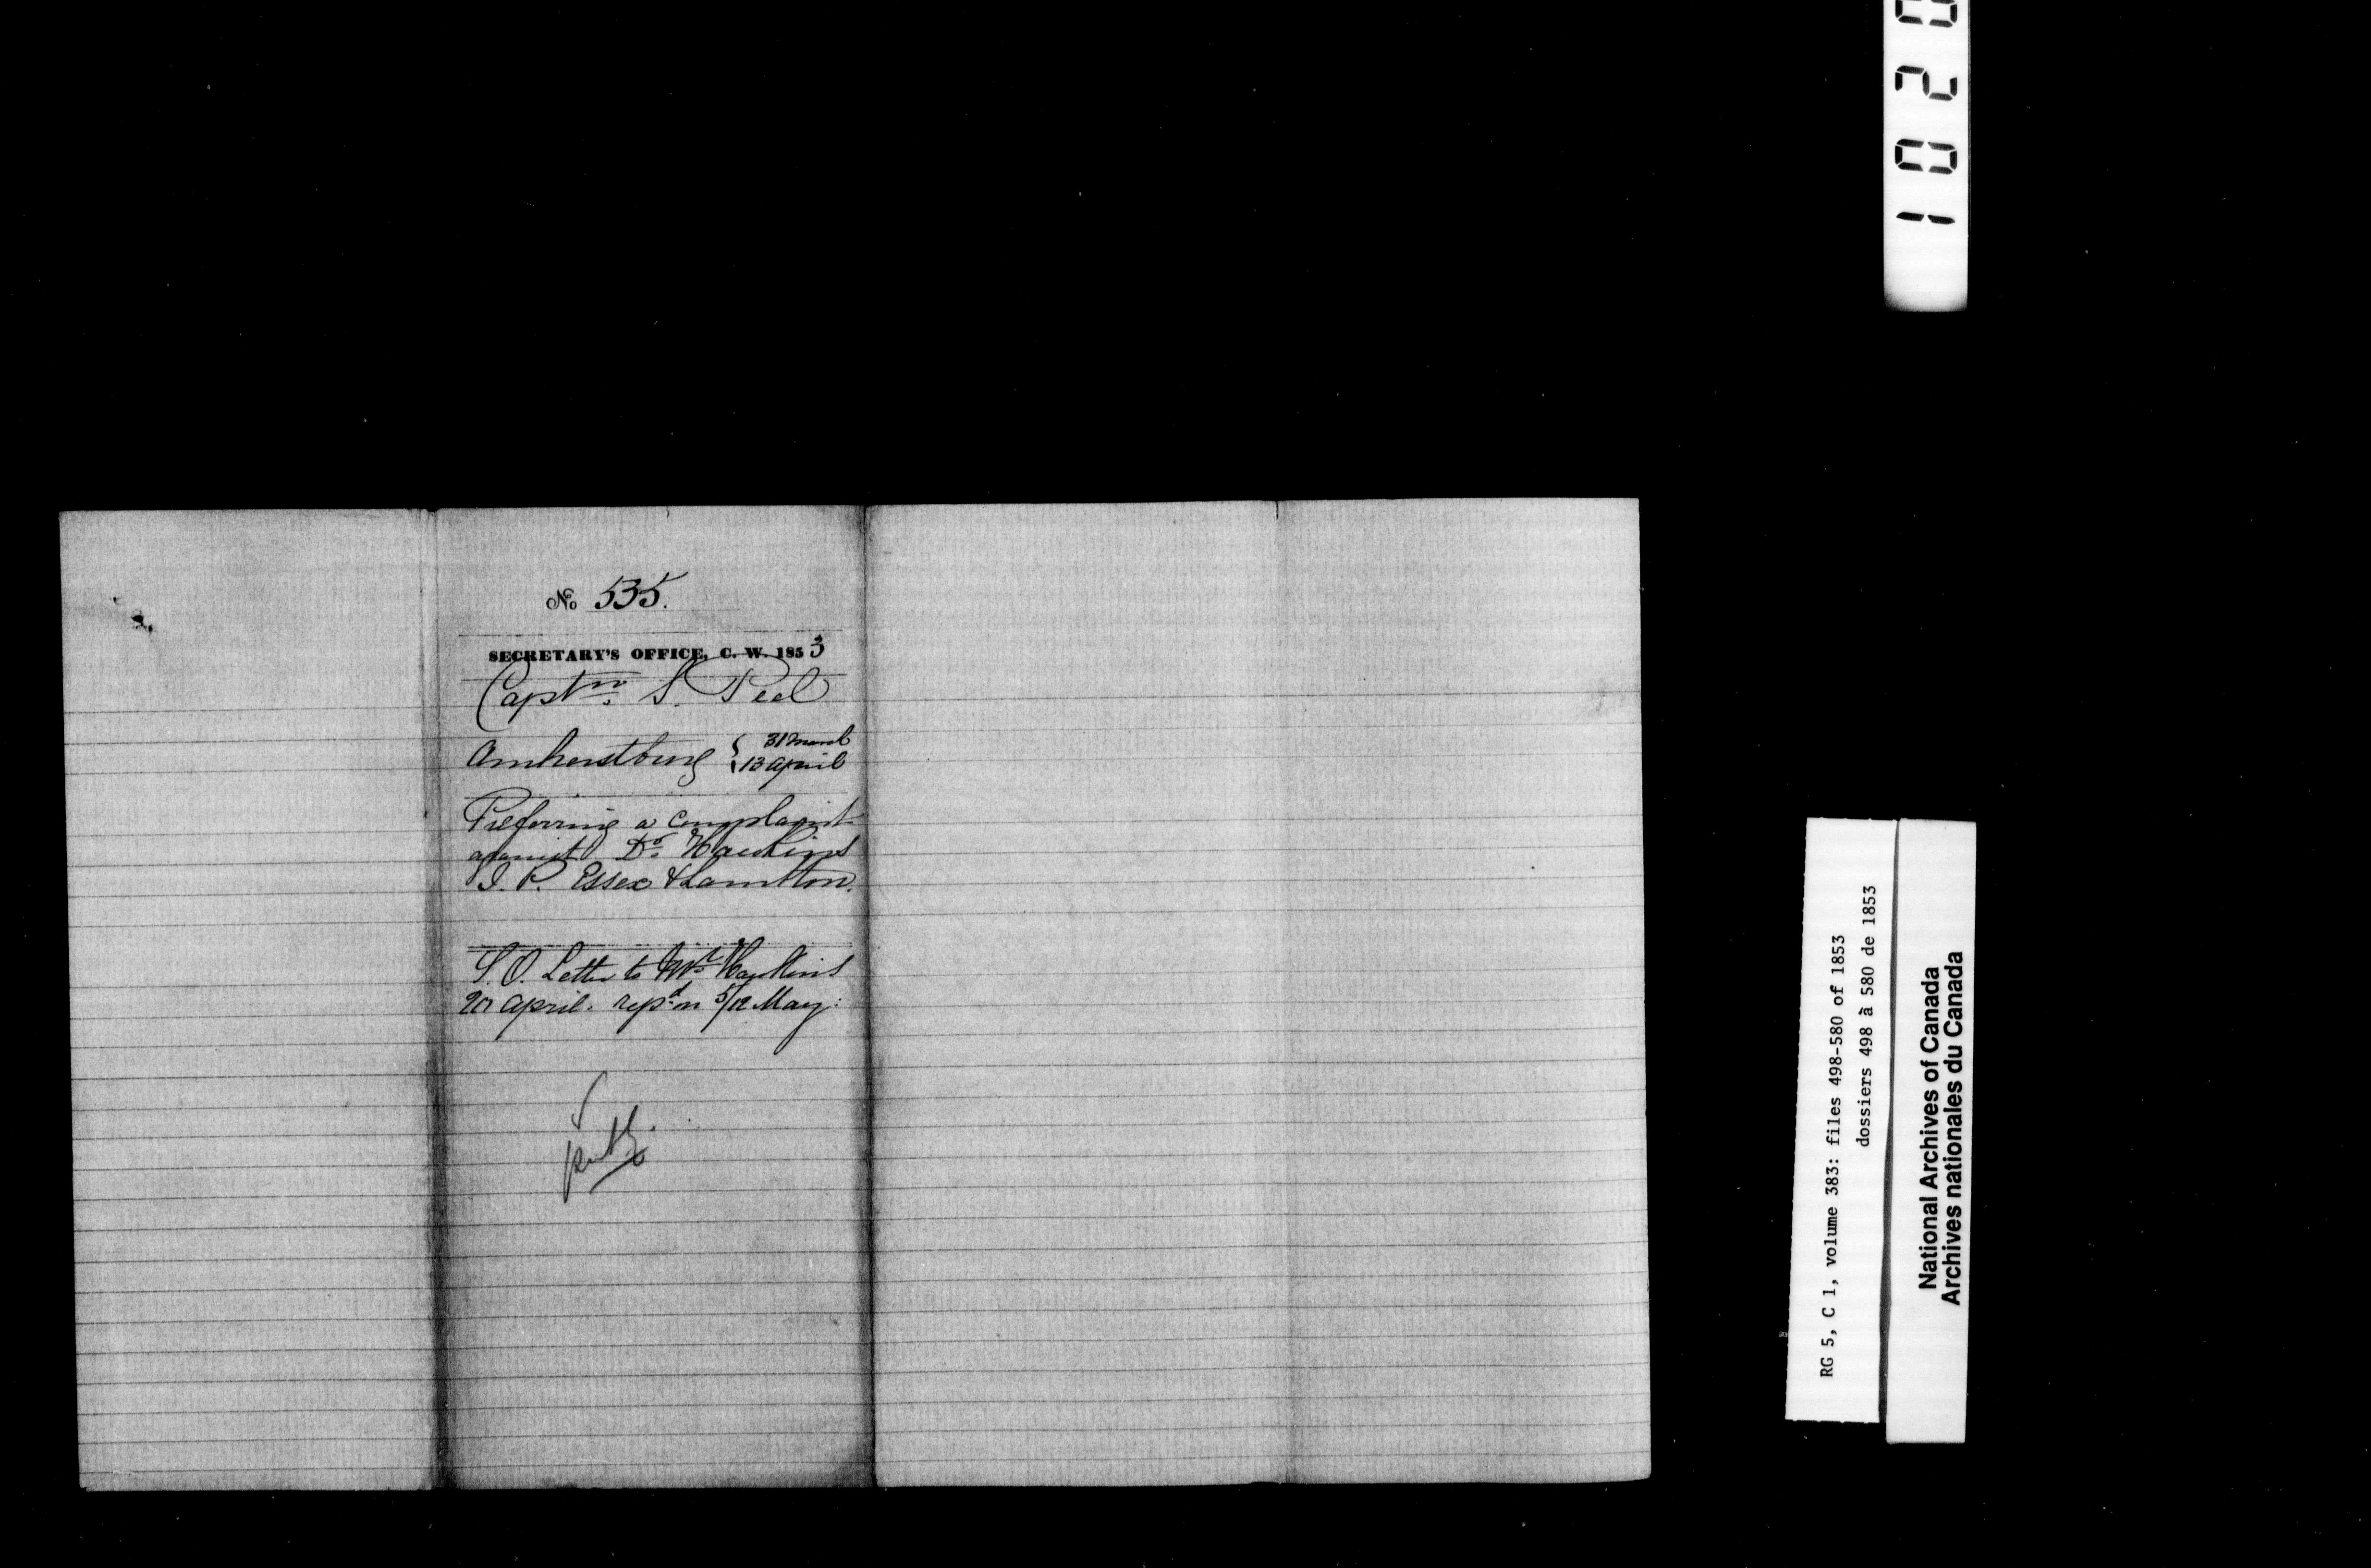 No 535.
SECRETARY'S OFFICE, C. W. 1853
Captn. S. Peel
Amherstburg { 31 March
13 April
Preferring a complaint
against Dr. Hawkins
J. P. Essex & Lambton.
S. O. Letter to Mr. Hawkins
20 April. repd. in 5/12 May.
1020
RG 5, C 1, volume 383: files 498-580 of 1853
dossiers 498 à 580 de 1853
National Archives of Canada
Archives nationales du Canada